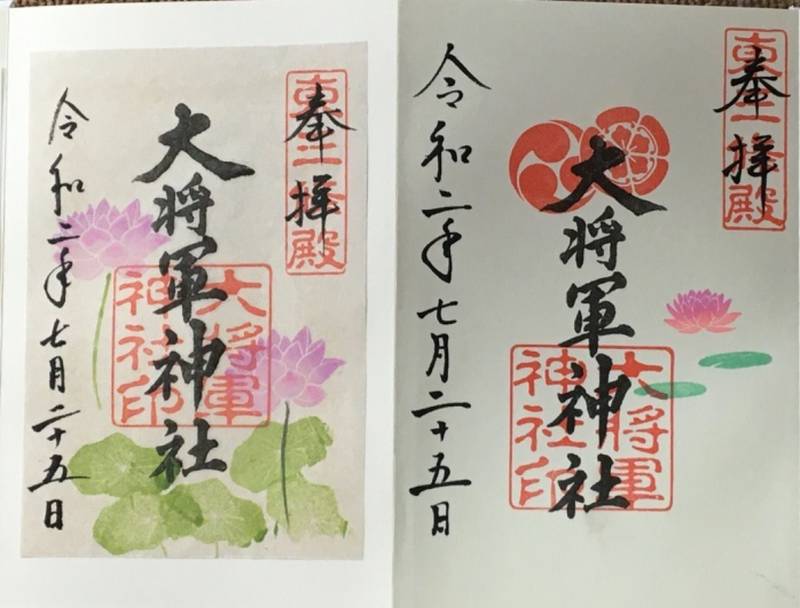 奉拝
大将軍神社
大將軍
神社印
令和二年七月二十五日
奉拝
大将軍神社
大將軍
神社印
令和二年七月二十五日